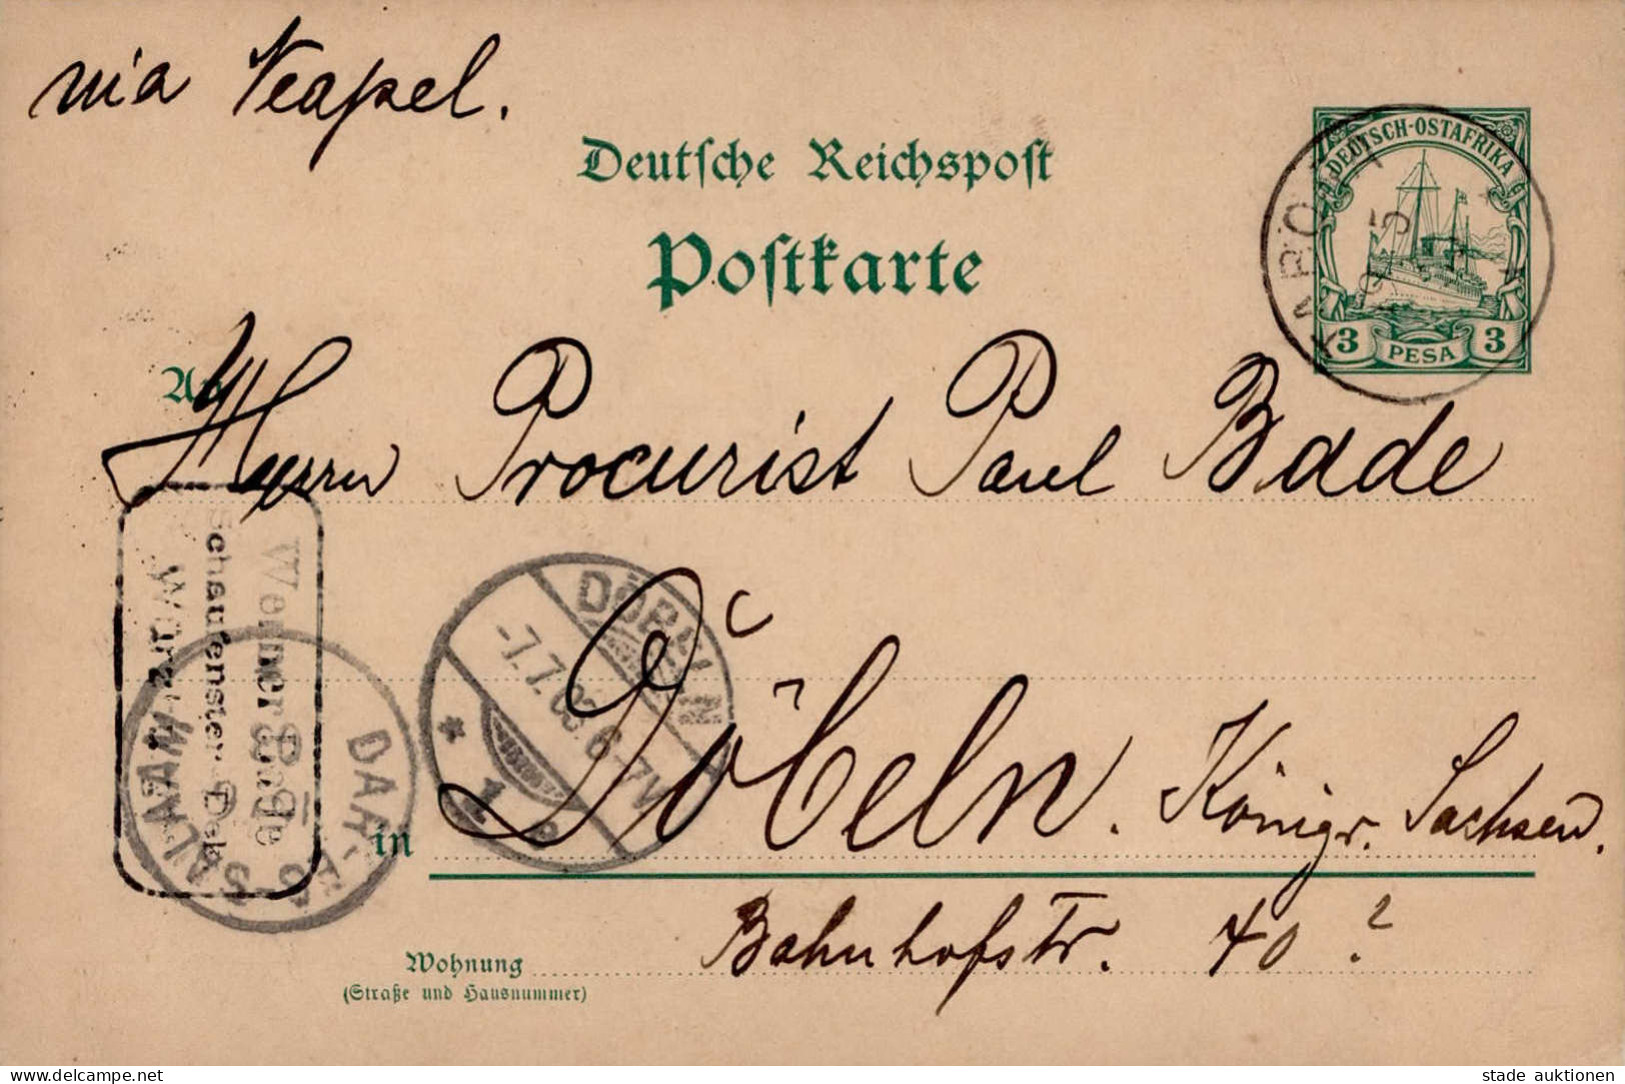 via Neapel.
Deutsche Reichspost
Postkarte
DEUTSCH-OSTAFRIKA
3 PESA 3
An
Herrn Procurist Paul Bade
Werner Bade
Schaufenster-Dek
DÖBELN
-7.7.03.6-7V.
* 1 b
DAR-ES-SALAAM
in Döbeln. Königr. Sachsen.
Bahnhofstr. 40?
Wohnung
(Straße und Hausnummer)
stade auktionen